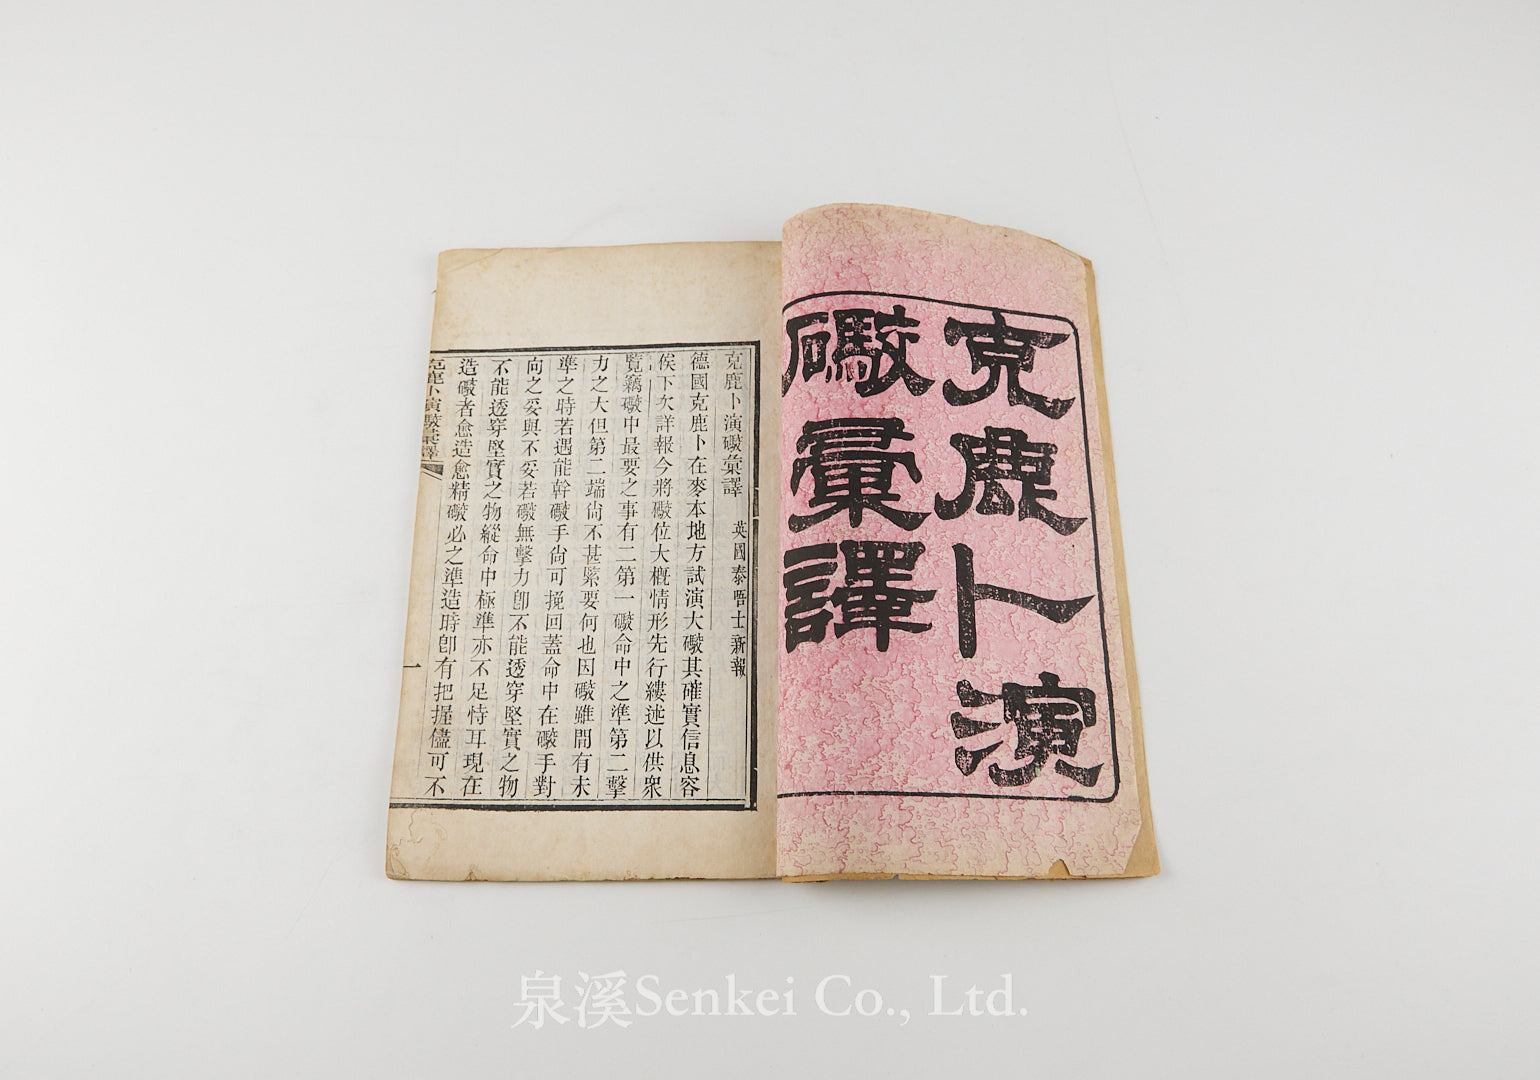 克鹿卜演
礮彙譯
克鹿卜演礮彙譯
英國泰晤士新報
德國克鹿卜在麥本地方試演大礮其確實信息容
俟下次詳報今將礮位大概情形先行縷述以供衆
覽竊礮中最要之事有二第一礮命中之準第二擊
力之大但第二端尙不甚緊要何也因礮雖間有未
準之時若遇能幹礮手尙可挽回蓋命中在礮手對
向之妥與不妥若礮無擊力卽不能透穿堅實之物
不能透穿堅實之物縱命中極準亦不足恃耳現在
造礮者愈造愈精礮必之準造時卽有把握儘可不
克鹿卜演礮彙譯
一
泉溪Senkei Co., Ltd.